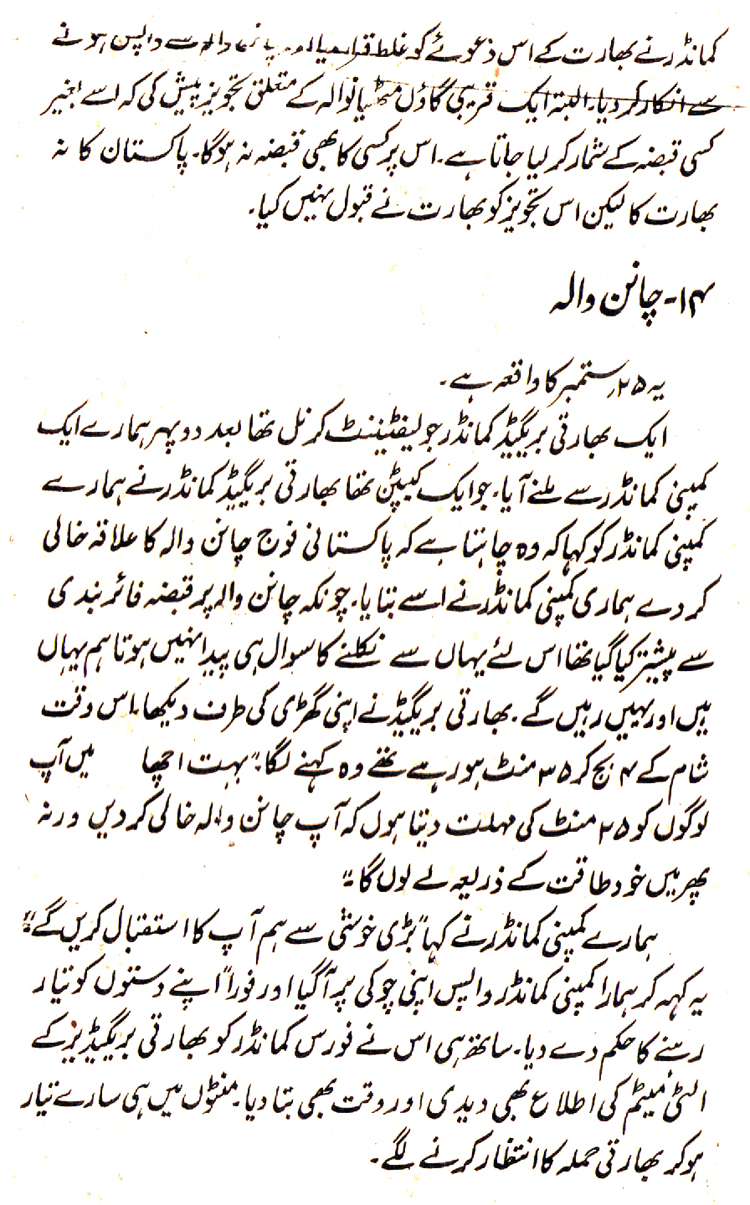 کمانڈر نے بھارت کے اس دعوئے کو غلط قرار دیا اور چانن والہ سے واپس ہونے
سے انکار کر دیا۔ البتہ ایک قریبی گاؤں مٹھیانوالہ کے متعلق تجویز پیش کی کہ اسے بغیر
کسی قبضہ کے شمار کر لیا جاتا ہے۔ اس پر کسی کا بھی قبضہ نہ ہوگا۔ پاکستان کا نہ
بھارت کا لیکن اس تجویز کو بھارت نے قبول نہیں کیا۔
۱۴- چانن والہ
یہ ۲۵ر ستمبر کا واقعہ ہے۔
ایک بھارتی بریگیڈ کمانڈر جو لیفٹیننٹ کرنل تھا بعد دوپہر ہمارے ایک
کمپنی کمانڈر سے ملنے آیا۔ جو ایک کیپٹن تھا بھارتی بریگیڈ کمانڈر نے ہمارے
کمپنی کمانڈر کو کہا کہ وہ چاہتا ہے کہ پاکستانی فوج چانن والہ کا علاقہ خالی
کر دے ہماری کمپنی کمانڈر نے اسے بتایا۔ چونکہ چانن والہ پر قبضہ فائر بندی
سے پیشتر کیا گیا تھا اس لئے یہاں سے نکلنے کا سوال ہی پیدا نہیں ہوتا ہم یہاں
ہیں اور یہیں رہیں گے۔ بھارتی بریگیڈ نے اپنی گھڑی کی طرف دیکھا۔ اس وقت
شام کے ۴ بج کر ۳۵ منٹ ہو رہے تھے وہ کہنے لگا۔ "بہت اچھا میں آپ
لوگوں کو ۲۵ منٹ کی مہلت دیتا ہوں کہ آپ چانن والہ خالی کر دیں ورنہ
پھر میں خود طاقت کے ذریعہ لے لوں گا۔"
ہمارے کمپنی کمانڈر نے کہا "بڑی خوشی سے ہم آپ کا استقبال کریں گے۔"
یہ کہہ کر ہمارا کمپنی کمانڈر واپس اپنی چوکی پر آگیا اور فوراً اپنے دستوں کو تیار
رہنے کا حکم دے دیا۔ ساتھ ہی اس نے فورس کمانڈر کو بھارتی بریگیڈیر کے
الٹی میٹم کی اطلاع بھی دیدی اور وقت بھی بتا دیا۔ منٹوں میں ہی سارے تیار
ہو کر بھارتی حملہ کا انتظار کرنے لگے۔